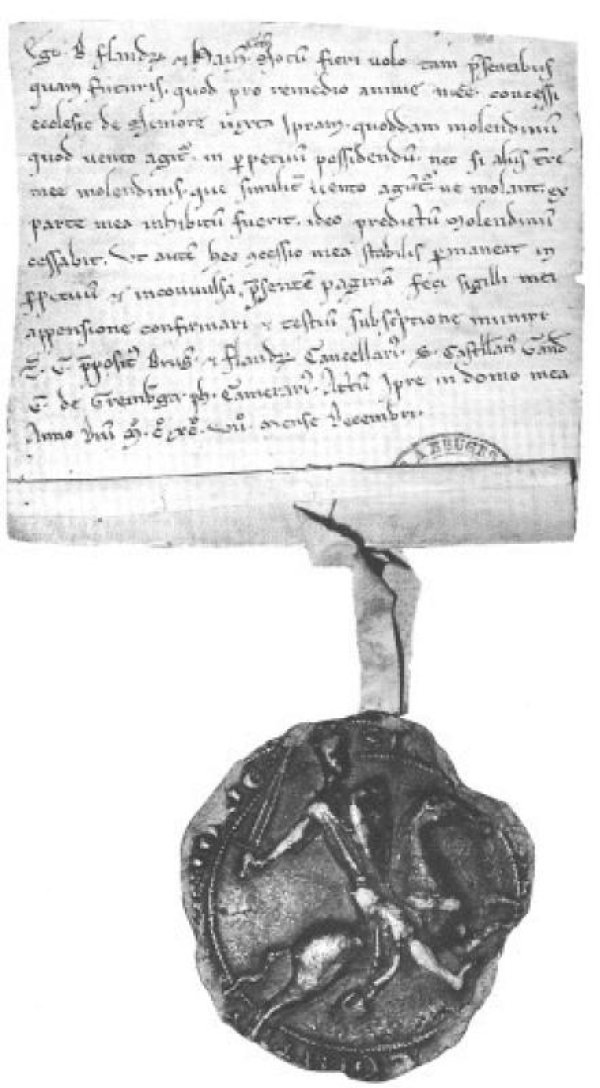 Ego. B. flandr̄ ⁊ Hayn̄ comes Notū fieri uolo tam p̄sentibus
quam futuris. quod pro remedio anime mee concessi
ecclesie de Nemore iuxta Ipram. quoddam molendinū
quod uento agit᷑. in ꝑpetuū possidendū. nec si aliis t̄re
mee molendinis. que similit̄ uento agūt᷑. ne molant. ex
parte mea inhibitū fuerit. ideo predictū Molendinū
cessabit. Vt autē hec ɔcessio mea stabilis ꝑmaneat in
ꝑpetuū ⁊ inconuulsa. p̄sentē paginam feci sigilli mei
appensione confirmari ⁊ testiū subsc̄ptione muniri
G. p̄posit᷒ Brug̃. ⁊ flandr̄ Cancellari᷒. S. Castellan᷒ Gand̄
G. de Gremb̄ga. ph. Camerari᷒. Actū Ipre in domo mea
Anno dn̄i M. C. XC. VII. Mense Decembri.
A BRUGES